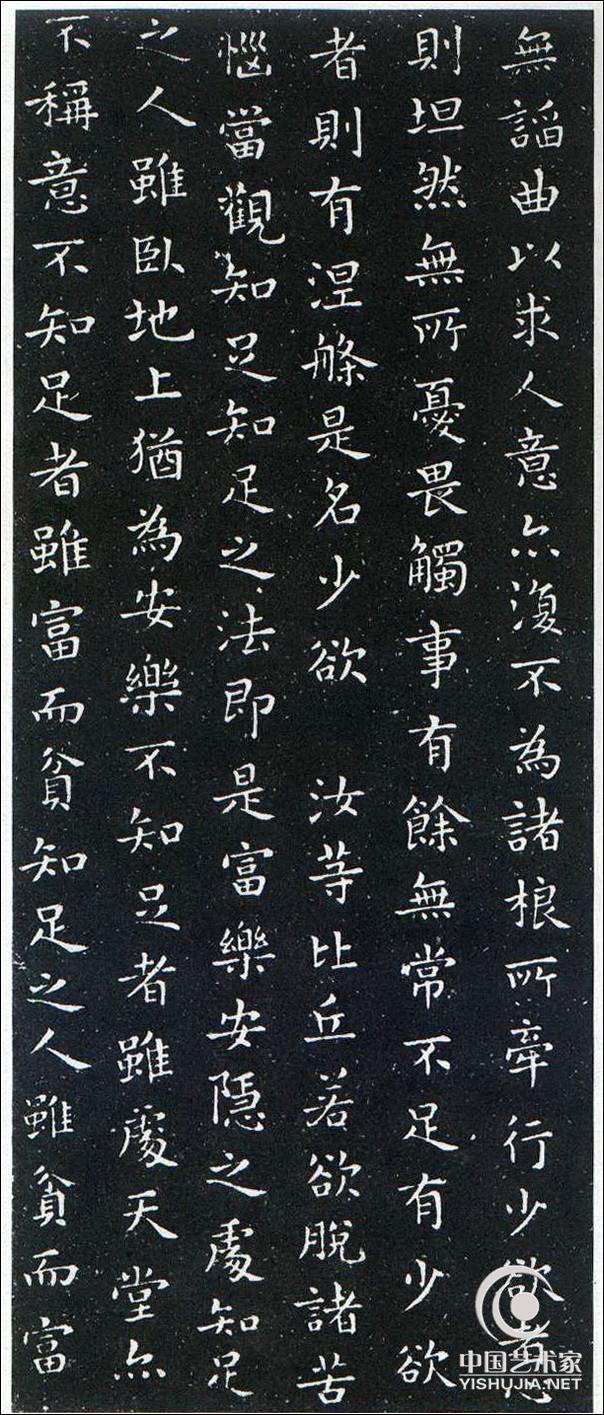 無謟曲以求人意亦復不為諸根所牽行少欲者心
則坦然無所憂畏觸事有餘無常不足有少欲
者則有涅槃是名少欲 汝等比丘若欲脫諸苦
惱當觀知足知足之法即是富樂安隱之處知足
之人雖臥地上猶為安樂不知足者雖處天堂亦
不稱意不知足者雖富而貧知足之人雖貧而富
中国艺术家
YISHUJIA.NET